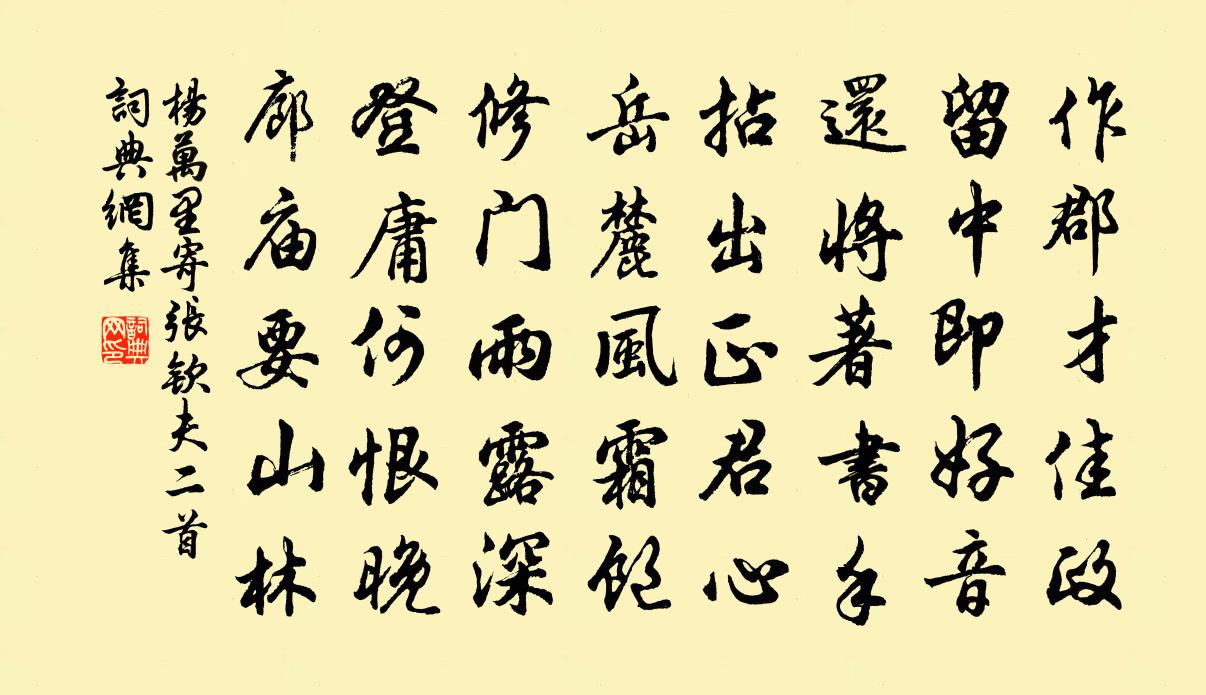 作郡才佳政
留中即好音
還將著書手
拈出正君心
岳麓風霜飽
修门雨露深
登庸何恨晚
廊庙要山林
楊萬里寄張欽夫二首
詞典網集
詞典网印